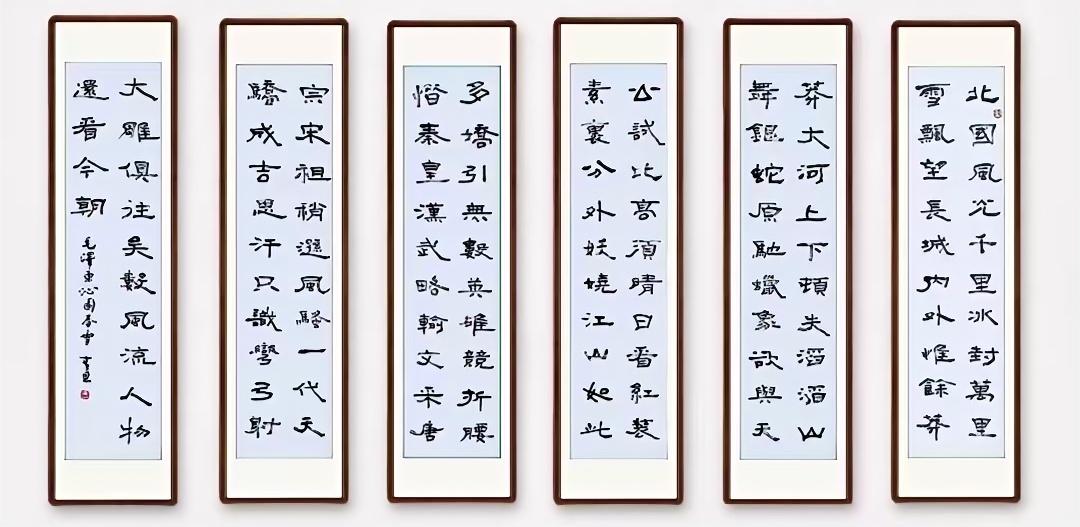 北國風光千里冰封萬里
雪飄望長城内外惟餘莽
莽大河上下頓失滔滔山
舞銀蛇原馳蠟象欲與天
公試比高須晴日看紅裝
素裹分外妖嬈江山如此
多嬌引無數英雄競折腰
惜秦皇漢武略輸文采唐
宗宋祖稍遜風騷一代天
驕成吉思汗只識彎弓射
大雕俱往矣數風流人物
還看今朝
毛澤東沁園春雪